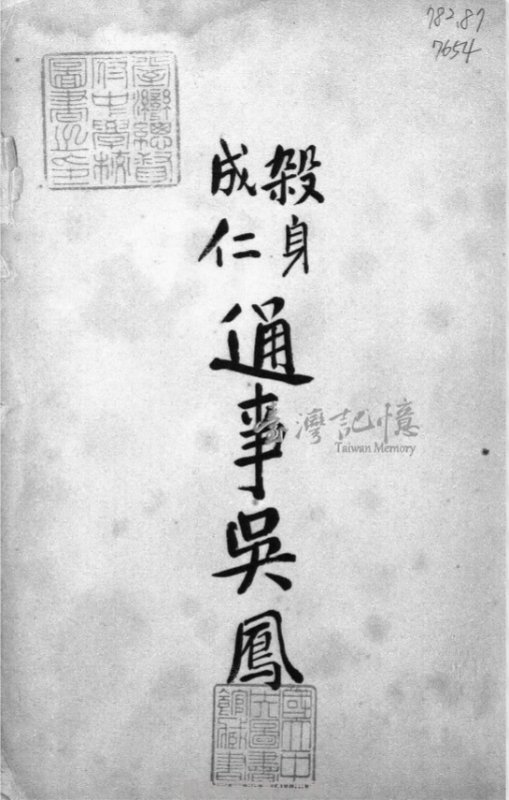 782.87
7654
臺灣總督
府中學校
圖書之印
殺身
成仁
通事吳鳳
臺灣記憶
Taiwan Memory
國立中
央圖書
館藏書